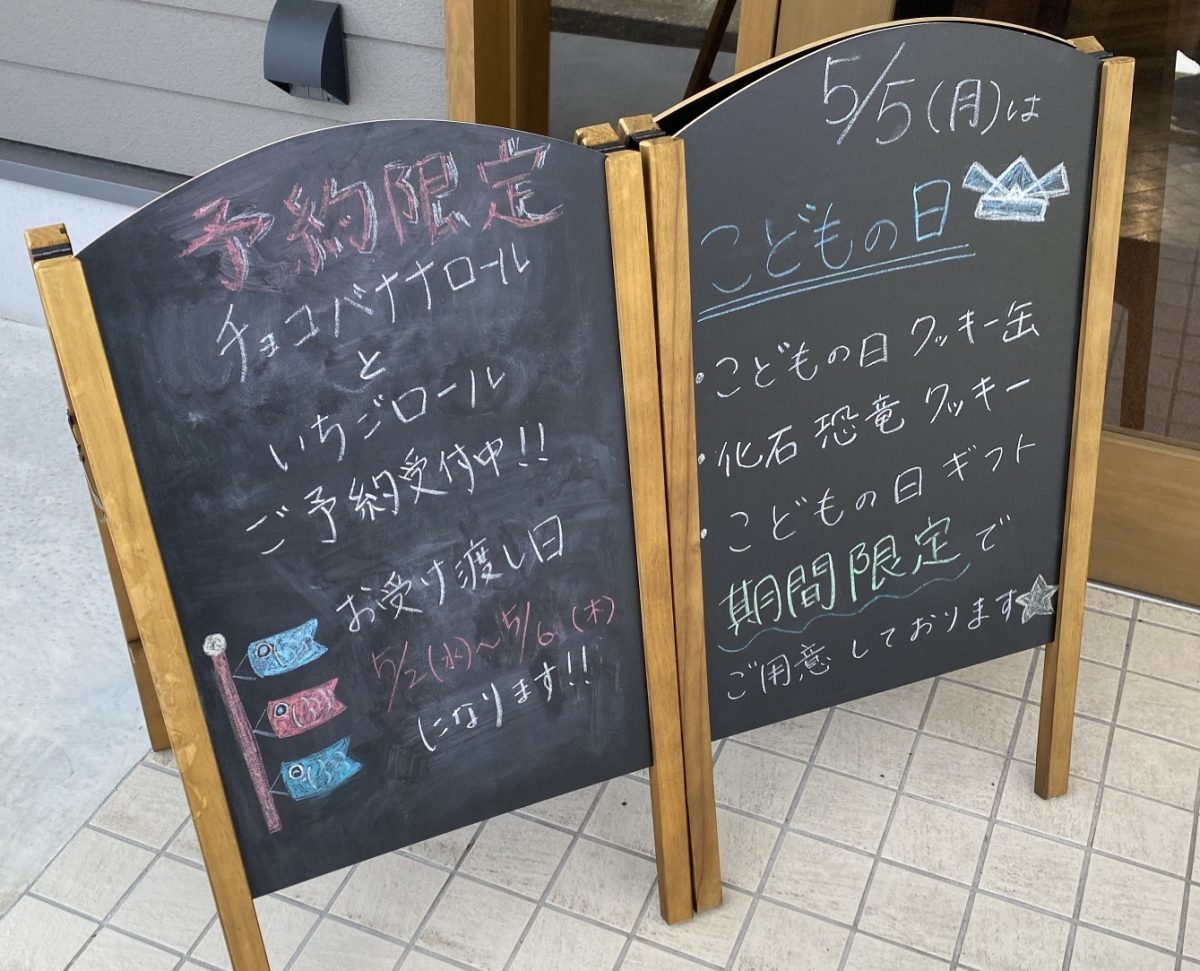 予約限定
チョコバナナロール
と
いちごロール
ご予約受付中!!
お受け渡し日
5/2(水)～5/6(木)
になります!!
5/5(月)は
こどもの日
・こどもの日 クッキー缶
・化石 恐竜 クッキー
・こどもの日 ギフト
期間限定で
ご用意しております